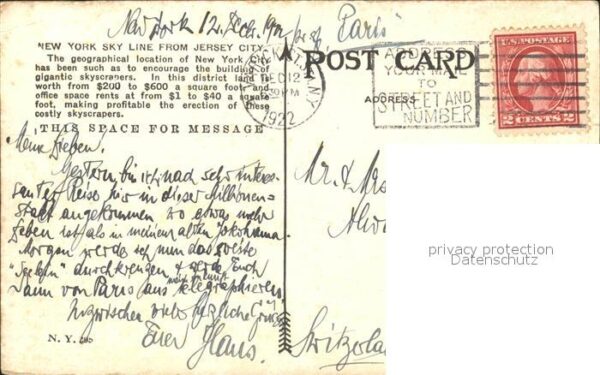 New York 12. Dec. 1922
Paris
NEW YORK SKY LINE FROM JERSEY CITY.
The geographical location of New York City
has been such as to encourage the building of
gigantic skyscrapers. In this district land is
worth from $200 to $600 a square foot and
office space rents at from $1 to $40 a square
foot, making profitable the erection of these
costly skyscrapers.
THIS SPACE FOR MESSAGE
POST CARD
ADDRESS
N.Y.
DEC 12
PM
1922
ADDRESS
YOUR MAIL
TO
STREET AND
NUMBER
U.S. POSTAGE
2 CENTS 2
Meine Lieben.
Gestern bin ich nach sehr interes-
santer Reise hier in dieser Millionen-
stadt angekommen wo etwas mehr
Leben ist als in meinem alten Yokohama
Morgen werde ich nun das zweite
durchkreuzen & werde Euch
dann von Paris aus telegraphieren
Inzwischen viele herzliche Grüsse
Euer Hans.
Mr. & Mrs
Switzerla
N. Y.
privacy protection
Datenschutz